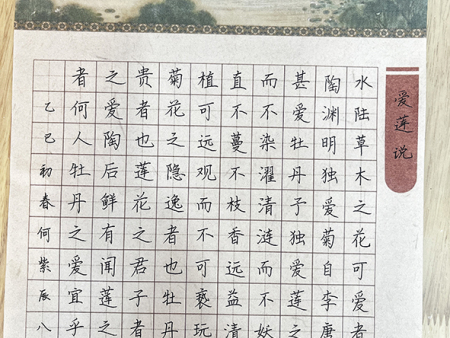 爱莲说
水陆草木之花可爱者
陶渊明独爱菊自李唐
甚爱牡丹予独爱莲之
而不染濯清涟而不妖
直不蔓不枝香远益清
植可远观而不可亵玩
菊花之隐逸者也牡丹
贵者也莲花之君子者
之爱陶后鲜有闻莲之
者何人牡丹之爱宜乎
乙巳初春何紫辰八